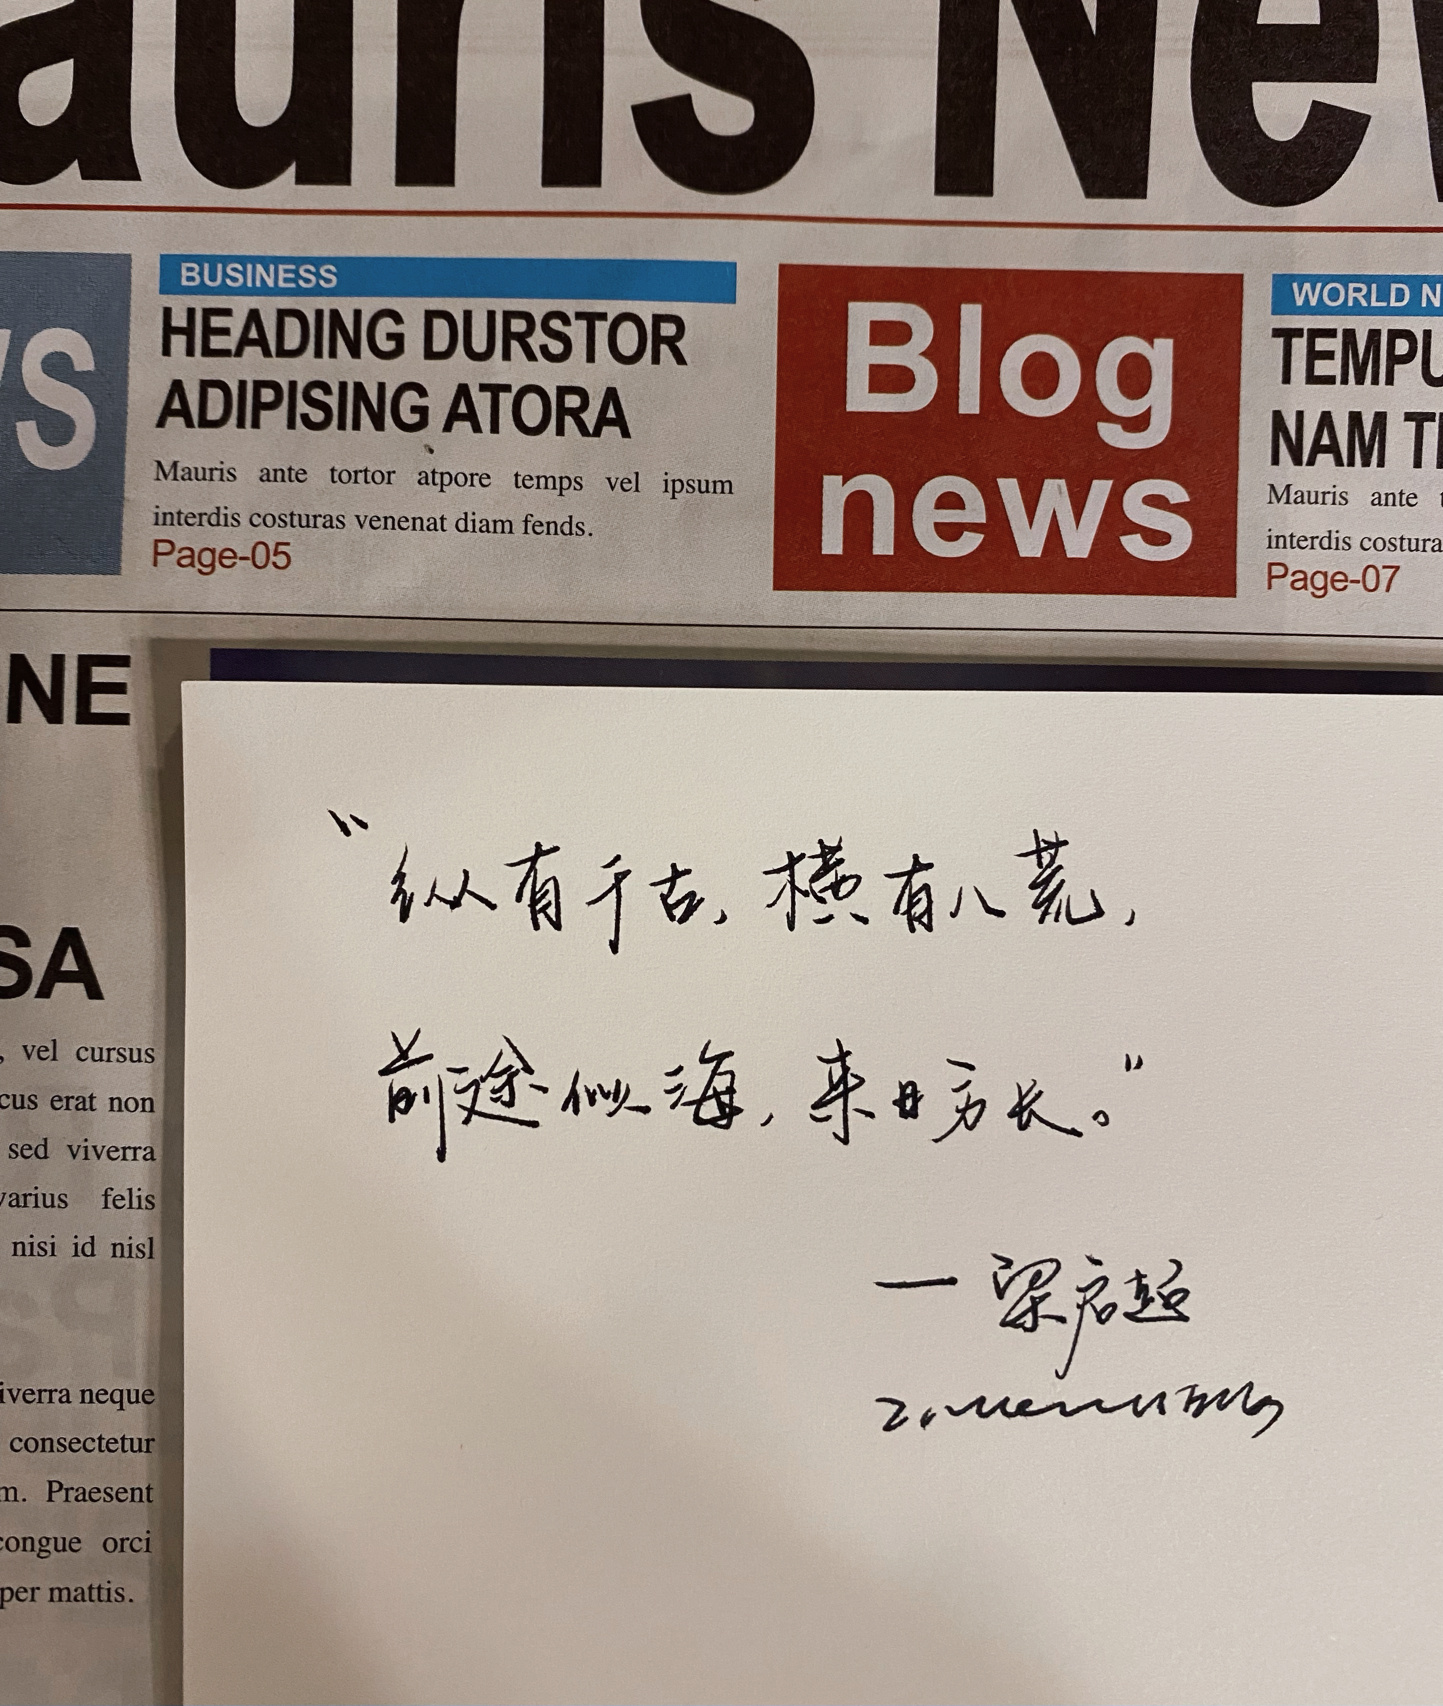 auris New
BUSINESS
HEADING DURSTOR
ADIPISING ATORA
Mauris ante tortor atpore temps vel ipsum
interdis costuras venenat diam fends.
Page-05
Blog
news
WORLD N
TEMPU
NAM TI
Mauris ante t
interdis costura
Page-07
NE
SA
, vel cursus
cus erat non
sed viverra
varius felis
nisi id nisl
iverra neque
consectetur
m. Praesent
congue orci
per mattis.
“纵有千古，横有八荒，
前途似海，来日方长。”
—梁启超